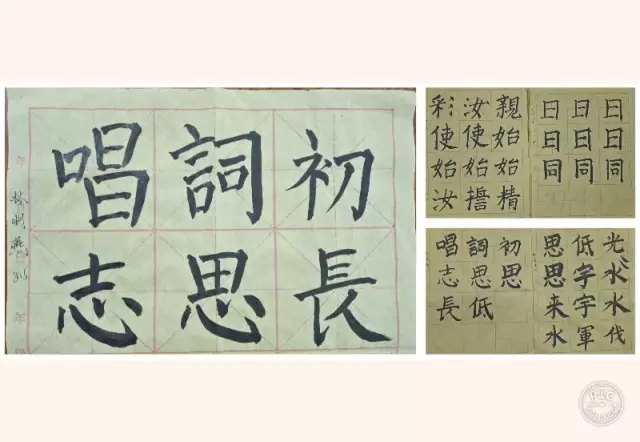 初長
詞思
唱志
年
年
日日同
日日同
日日同
親始始精
汝使始
彩使始汝
光水水伐
低字字軍
思思来水
初思
詞思低
唱志長